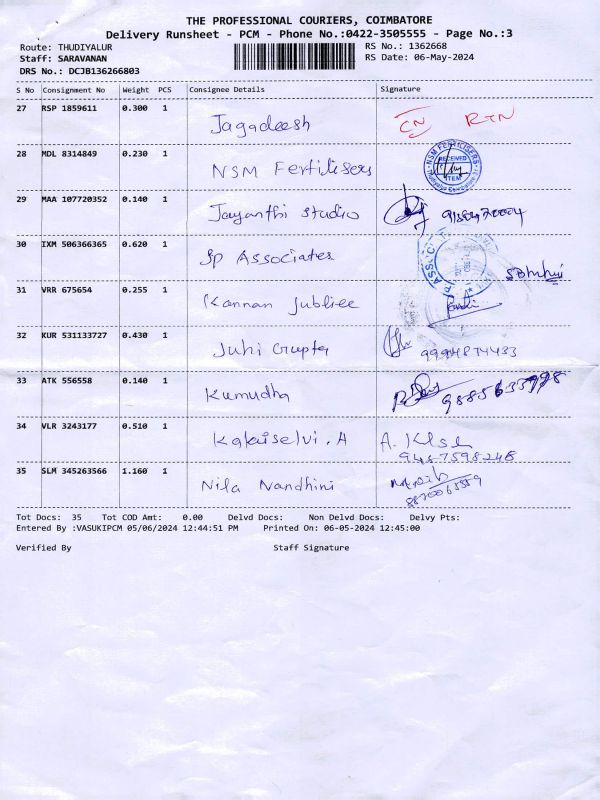 THE PROFESSIONAL COURIERS, COIMBATORE
Delivery Runsheet - PCM - Phone No.:0422-3505555 - Page No.:3
Route: THUDIYALUR RS No.: 1362668
Staff: SARAVANAN RS Date: 06-May-2024
DRS No.: DCJB136266803
S No Consignment No Weight PCS Consignee Details Signature
27 RSP 1859611 0.300 1 Jagadeesh CN RTN
28 MDL 8314849 0.230 1 NSM Fertilisers NSM FERTILISERS RECEIVED
29 MAA 107720352 0.140 1 Jayanthi Studio
30 IXM 506366365 0.620 1 SP Associates
31 VRR 675654 0.255 1 Kannan Jubliee
32 KUR 531133727 0.430 1 Juhi Gupta 9994874433
33 ATK 556558 0.140 1 Kumudha
34 VLR 3243177 0.510 1 Kalaiselvi.A A.
35 SLM 345263566 1.160 1 Nila Nandhini
Tot Docs: 35 Tot COD Amt: 0.00 Delvd Docs: Non Delvd Docs: Delvy Pts:
Entered By :VASUKIPCM 05/06/2024 12:44:51 PM Printed On: 06-05-2024 12:45:00
Verified By Staff Signature